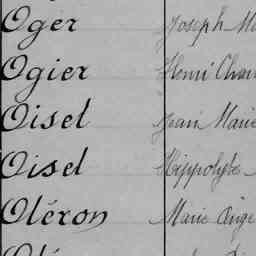 Oger Joseph Ma
Ogier Henri Char
Oisel Jean Marie
Oisel Hippolyte
Oléron Marie Ange